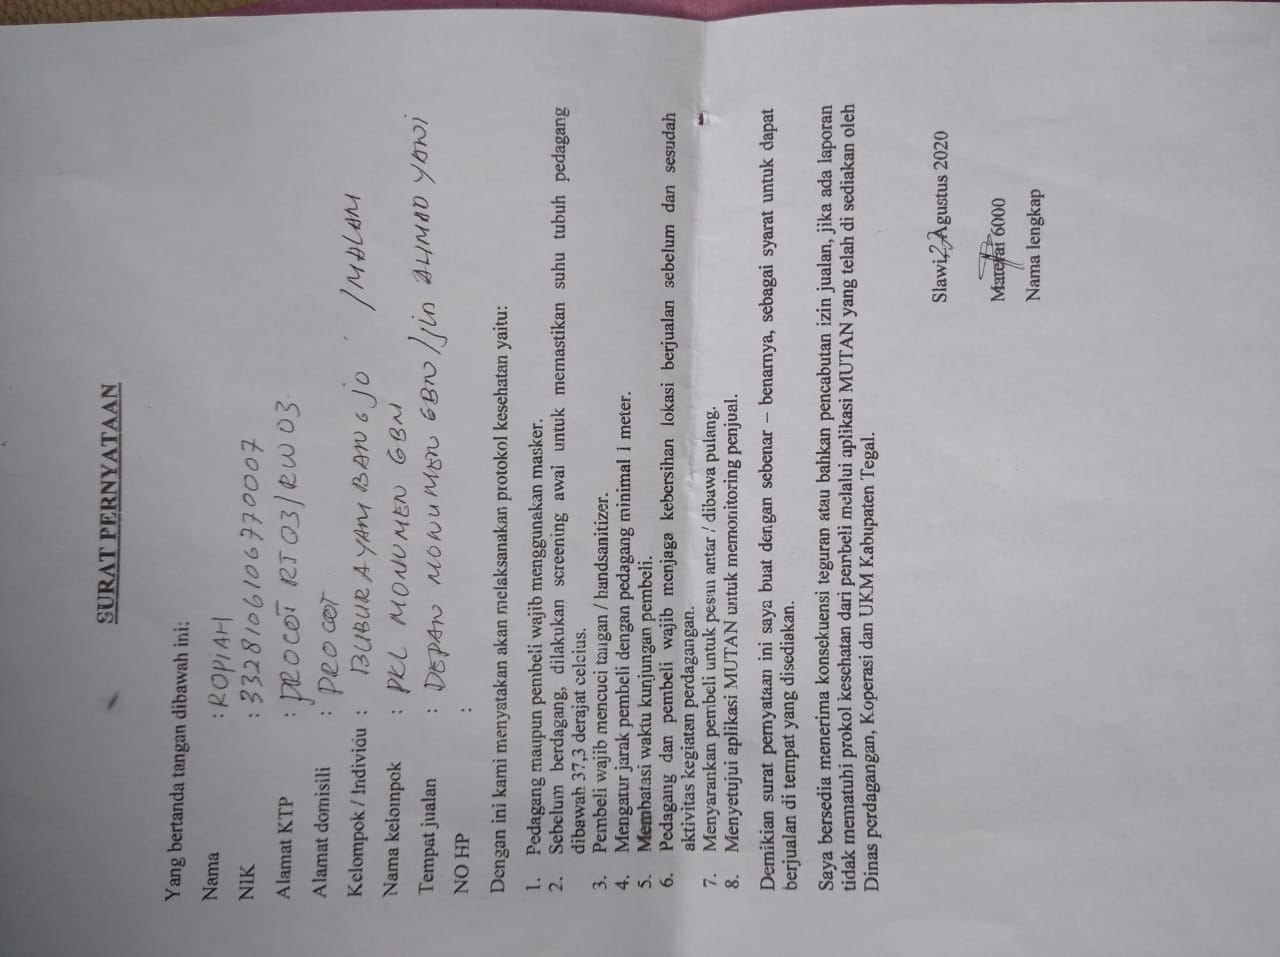 SURAT PERNYATAAN
Yang bertanda tangan dibawah ini:
Nama : ROPIAH
NIK : 3328106106770007
Alamat KTP : PROCOT RT03/RW03.
Alamat domisili : PROCOT
Kelompok / Individu : BUBUR AYAM BANG JO / MALAM
Nama kelompok : PKL MONUMEN GBN
Tempat jualan : DEPAN MONUMEN GBN/Jln AHMAD YANI
NO HP :
Dengan ini kami menyatakan akan melaksanakan protokol kesehatan yaitu:
1. Pedagang maupun pembeli wajib menggunakan masker.
2. Sebelum berdagang, dilakukan screening awal untuk memastikan suhu tubuh pedagang
dibawah 37,3 derajat celcius.
3. Pembeli wajib mencuci tangan / handsanitizer.
4. Mengatur jarak pembeli dengan pedagang minimal 1 meter.
5. Membatasi waktu kunjungan pembeli.
6. Pedagang dan pembeli wajib menjaga kebersihan lokasi berjualan sebelum dan sesudah
aktivitas kegiatan perdagangan.
7. Menyarankan pembeli untuk pesan antar / dibawa pulang.
8. Menyetujui aplikasi MUTAN untuk memonitoring penjual.
Demikian surat pernyataan ini saya buat dengan sebenar – benarnya, sebagai syarat untuk dapat
berjualan di tempat yang disediakan.
Saya bersedia menerima konsekuensi teguran atau bahkan pencabutan izin jualan, jika ada laporan
tidak mematuhi prokol kesehatan dari pembeli melalui aplikasi MUTAN yang telah di sediakan oleh
Dinas perdagangan, Koperasi dan UKM Kabupaten Tegal.
Slawi 22 Agustus 2020
Materai 6000
Nama lengkap